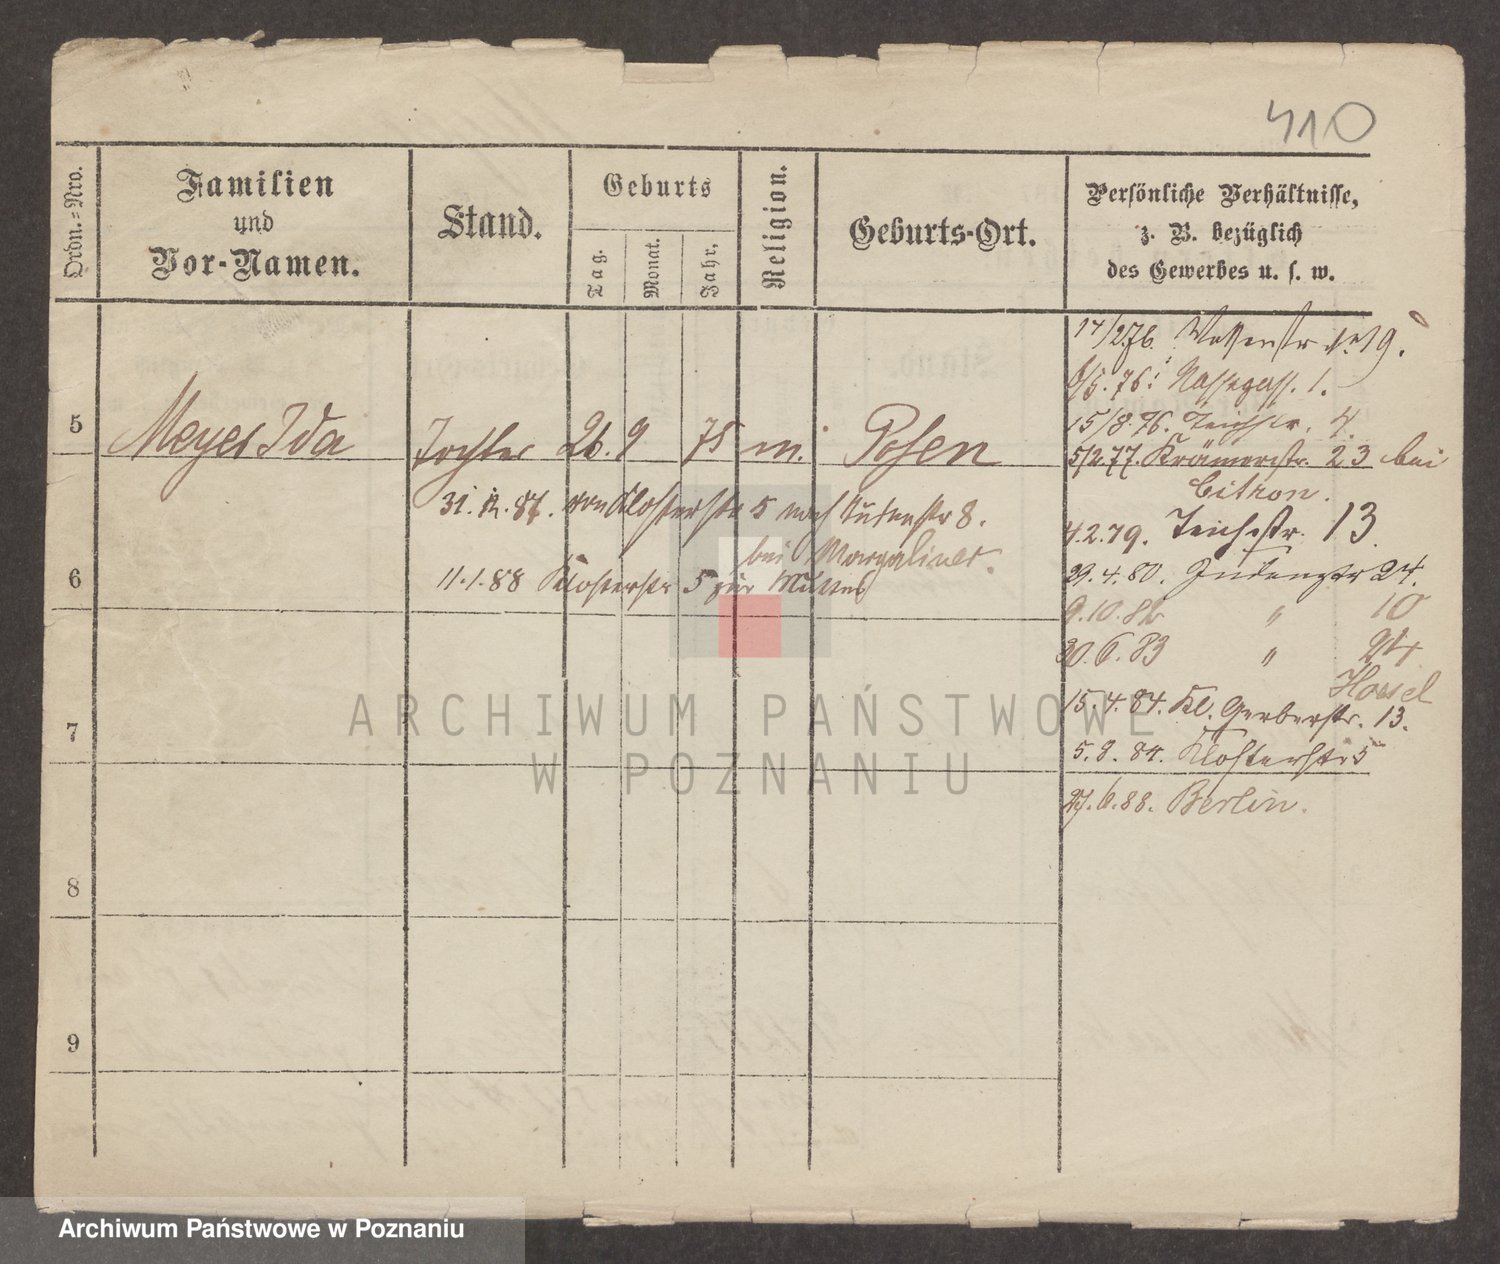 410
Ordn.=Nro.
Familien
und
Vor-Namen.
Stand.
Geburts
Tag.
Monat.
Jahr.
Religion.
Geburts-Ort.
Persönliche Verhältnisse,
z. B. bezüglich
des Gewerbes u. s. w.
14/2.76.
9.
6/5.76. 1.
15/8.76. Teichstr. 4.
5
Meyer Ida
Tochter
26. 9
75
m.
Posen
5/2.77. Krämerstr. 23 bei
Citron.
31.12.87. von Klosterstr 5 nach Judenstr 8.
bei Margaliner.
4.2.79. Teichstr. 13.
6
11.1.88 Klosterstr 5 zur Mutter
29.4.80. Judenstr 24.
9.10.82 " 10
30.6.83 " 24
15.4.84. Kl. Gerberstr. 13.
7
5.8.84. Klosterstr 5
27.6.88. Berlin.
8
9
ARCHIWUM PAŃSTWOWE
W POZNANIU
Archiwum Państwowe w Poznaniu